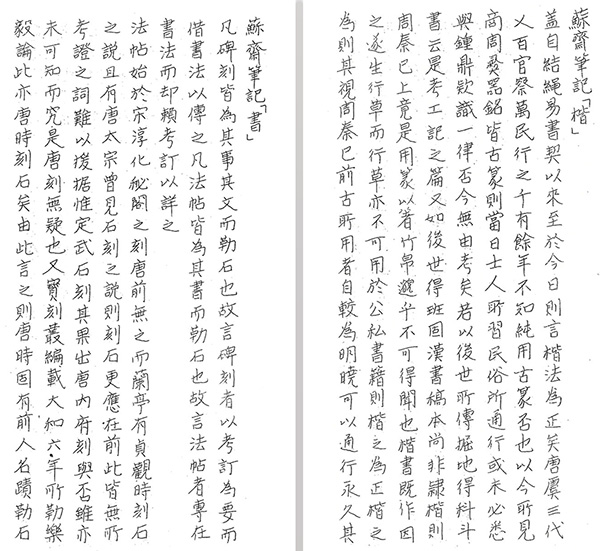 蘇齋筆記「楷」
蓋自結繩易書契以來至於今日則言楷法為正矣唐虞三代
以百官察萬民行之千有餘年不知純用古篆否也以今所見
商周彝器銘皆古篆則當日士人所習民俗所通行或未必悉
與鍾鼎款識一律否今無由考矣若以後世所傳掘地得科斗
書云是考工記之篇又如後世得班固漢書槁本尚非隸楷則
周秦已上竟是用篆以著竹帛邈乎不可得聞也楷書既作因
之遂生行草而行草亦不可用於公私書籍則楷之為正楷之
為則其視周秦已前古所用者自較為明曉可以通行永久其
蘇齋筆記「書」
凡碑刻皆為其事其文而勒石也故言碑刻者以考訂為要而
借書法以傳之凡法帖皆為其書而勒石也故言法帖者專在
書法而却賴考訂以詳之
法帖始於宋淳化祕閣之刻唐前無之而蘭亭有貞觀時刻石
之說且有唐太宗曾見石刻之說則刻石更應在前此皆無所
考證之詞難以援据惟定武石刻其果出唐內府刻與否雖亦
未可知而究是唐刻無疑也又寶刻叢編載大和六年所勒樂
毅論此亦唐時刻石矣由此言之則唐時固有前人名蹟勒石